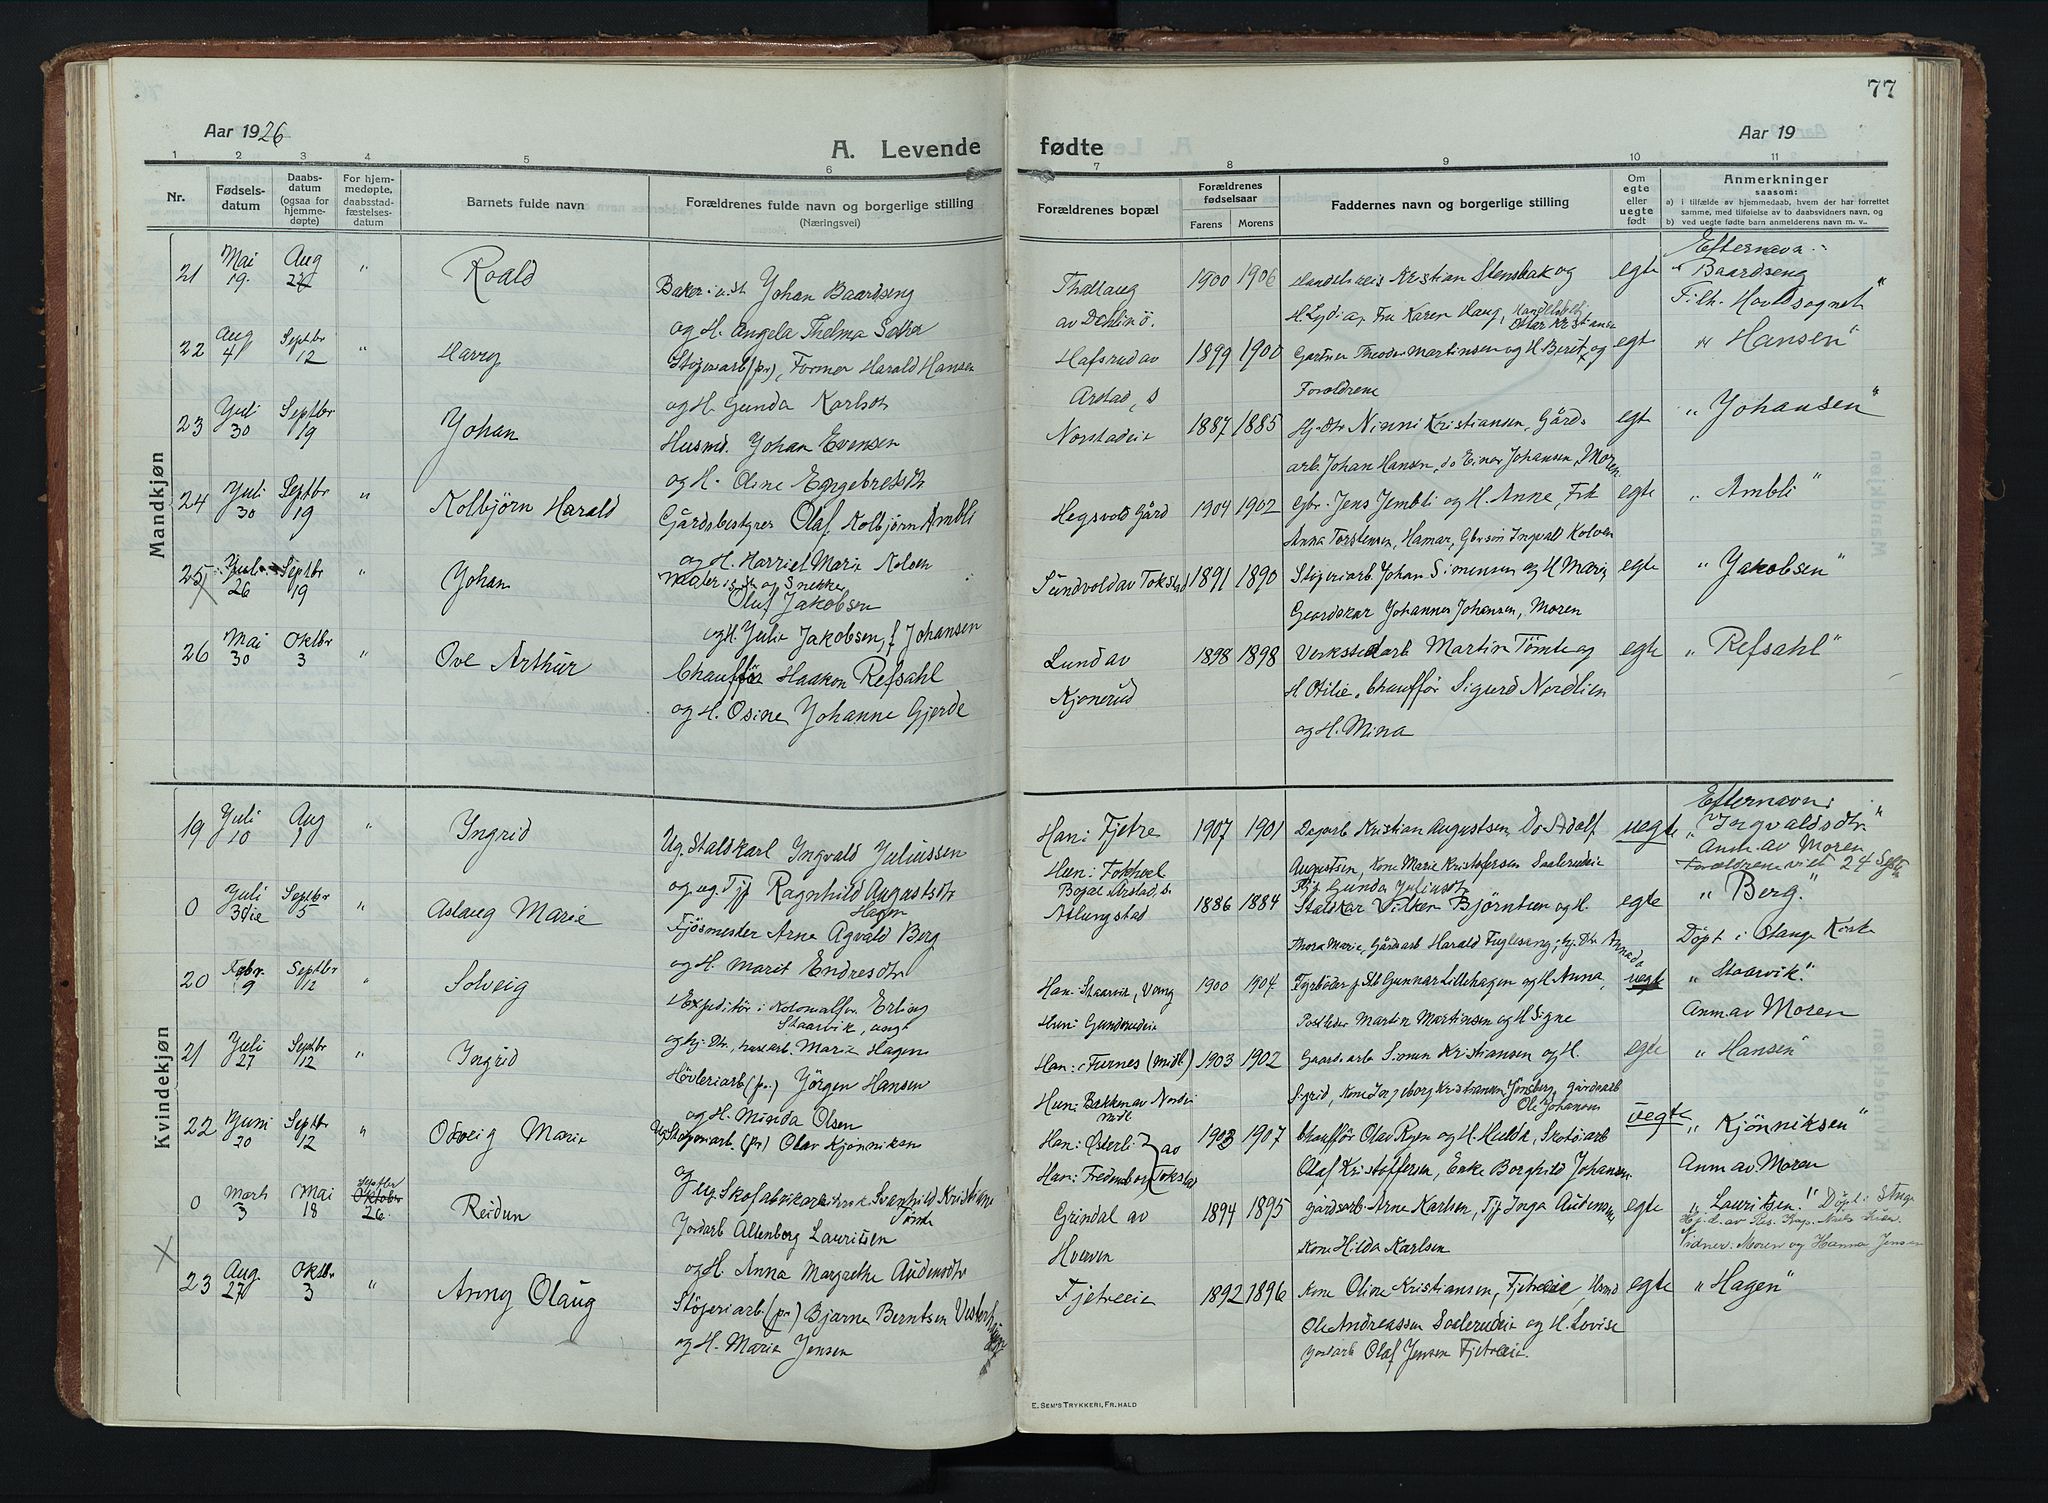 77
Aar 1926
A. Levende fødte
Aar 19
1 2 3 4 5 6 7 8 9 10 11
Nr.
Fødsels-
datum
Daabs-
datum
(ogsaa for
hjemme-
døpte)
For hjem-
medøpte,
daabsstad-
fæstelses-
datum
Barnets fulde navn
Forældrenes fulde navn og borgerlige stilling
(Næringsvei)
Forældrenes bopæl
Forældrenes
fødselsaar
Farens Morens
Faddernes navn og borgerlige stilling
Om
egte
eller
uegte
født
Anmerkninger
saasom:
a) i tilfælde av hjemmedaab, hvem der har forrettet
samme, med tilføielse av to daabsvidners navn, og
b) ved uegte fødte barn anmelderens navn m. v..
Mandkjøn
21 Mai 19. Aug " Roald
Baker Johan Baardseng
og H. Angela Thelma
Thallaug
av Dahlinö.
1900 1906
Kristian Stensbak og
H. Lydia, Fru Karen Haug,
egte
Efternavn:
"Baardseng"
22 Aug 4 Septbr 12 " Harry
Støperiarb (pr), Former Harald Hansen
og H. Gunda Karlsdtr
Hafsrud av
Arstad, s
1899 1900
Gartner Theodor Martinsen og H. Berit, og
Forældrene
egt
"Hansen"
23 Juli 30 Septbr 19 Johan
Husmd. Johan Evensen
og H. Oline Engebretsdtr
Norstadeie
1887 1885
Hj. dtr Ninni Kristiansen, Gårds
arb. Johan Hansen, do Einar Johansen, Moren
egte
"Johansen"
24 Juli 30 Septbr 19 " Kolbjørn Harald
Gårdsbestyrer Olaf Kolbjørn Ambli
og H. Harriet Marie Nolven
Hegsvold Gård
1904 1902
Gbr. Jens Jembli og H. Anne, Frk
Anna Torstensen, Hamar, Gbrsön Ingvald Kolven
egte
"Ambli"
25 Juli 26 Septbr 19 " Johan
Maler og Snekker
Oluf Jakobsen
og H. Julie Jakobsen, f Johansen
Sundvold av Tokstad
1891 1890
Støperiarb Johan Simensen og H Marie
Gaardskar Johannes Johansen, Moren
egte
"Jakobsen"
26 Mai 30 Oktbr 3 " Ove Arthur
Chauffør Haakon Refsahl
og H. Osine Johanne Gjerde
Lund av
Kjonerud
1898 1898
Verkstedarb Martin Tömte og
H. Otilie, Chauffør Sigurd Nordlien
og H. Mina
egte
"Refsahl"
Kvindekjøn
19 Juli 10 Aug 1 " Ingrid
Ug. Staldkarl Ingvald Juliussen
og ug Tjp Ragnhild Augustsdtr
Han: Fjetre
Hun: Fokhol
1907 1901
Dagarb Kristian Augustsen Do Adolf
Augustsen, Kone Marie Kristofersen Saalerudeie
Tjp Gunda Juliusdtr
uegte
Efternavn:
"Ingvaldsdtr"
Anm. av Moren
Forældrene viet 24 Septbr
0 Juli 3die Septbr 5 " Aslaug Marie
Hagen
Fjøsmester Arne Agvald Berg
og H. Marit Endresdtr
Bopæl Arstad, s.
Atlungstad
1886 1884
Staldkar Vilken Björntsen og H.
Thora Marie, Gårdsarb Harald Fuglesang, hj. Dtr Annada
egte
"Berg."
Döpt i Stange Kirke
20 Febr 9 Septbr 12 " Solveig
Expeditör i Kolonialfor. Erling
Staarvik, ungk
og hj. Dtr, husarb. Marie Hagen
Han: Staarvik, Vang
Hun: Gundersudeie
1900 1904
Fyrböder p Stb Gunnar Lillehagen og H Anna,
Postleder Martin Martinsen og H Signe
uegte
"Staarvik."
Anm av Moren
21 Juli 27 Septbr 12 " Ingrid
Høvleriarb (pr.) Jörgen Hansen
og H. Minda Olsen
Han: i Furnes (midl)
Hun: Bakken av Nordvi
midl
1903 1902
Gaardsarb Simen Kristiansen og H.
Sigrid, Kone Ingeborg Kristiansen, Jönsberg, gårdsarb
Ole Johansen
egte
"Hansen"
22 Juni 20 Septbr 12 " Odveig Marie
Ug. Støperiarb. (pr) Olav Kjønniksen
og Ug. Skofabrikarb. Svanhild Kristians
Tömte
Han: Østerli
Han: Fredensborg
av
Tokstad
1903 1907
Chauffør Olav Ryen og H. Hulda, Skotöiarb
Olaf Kristoffersen, Enke Borghild Johansen
uegte
"Kjönniksen"
Anm av Moren
0 Marts 3 Mai 18 Septbr Oktober 26 Reidun
Jordarb Allenberg Lauritsen
og H. Anna Margrethe Audensdtr
Grindal av
Hverven
1894 1895
Gårdsarb Arne Karlsen, Tjp Inga Audensen
Kone Hilda Karlsen
egte
"Lauritsen" Döpt i Stange
Hj. d. av Res. Kap. Niels
Vidner: Moren og Hanna Jensen
23 Aug. 27 Oktbr 3 " Anny Olaug
Støperiarb (pr) Bjarne Berntsen
og H. Marie Jensen
Fjetreeie
1892 1896
Kone Oline Kristiansen, Fjetreeie, Husmd
Ole Andreassen Saalerudeie og H. Lovise
Jordarb Olaf Jensen Fjetreeie.
egte
"Hagen"
E. SEM'S TRYKKERI, FR.HALD